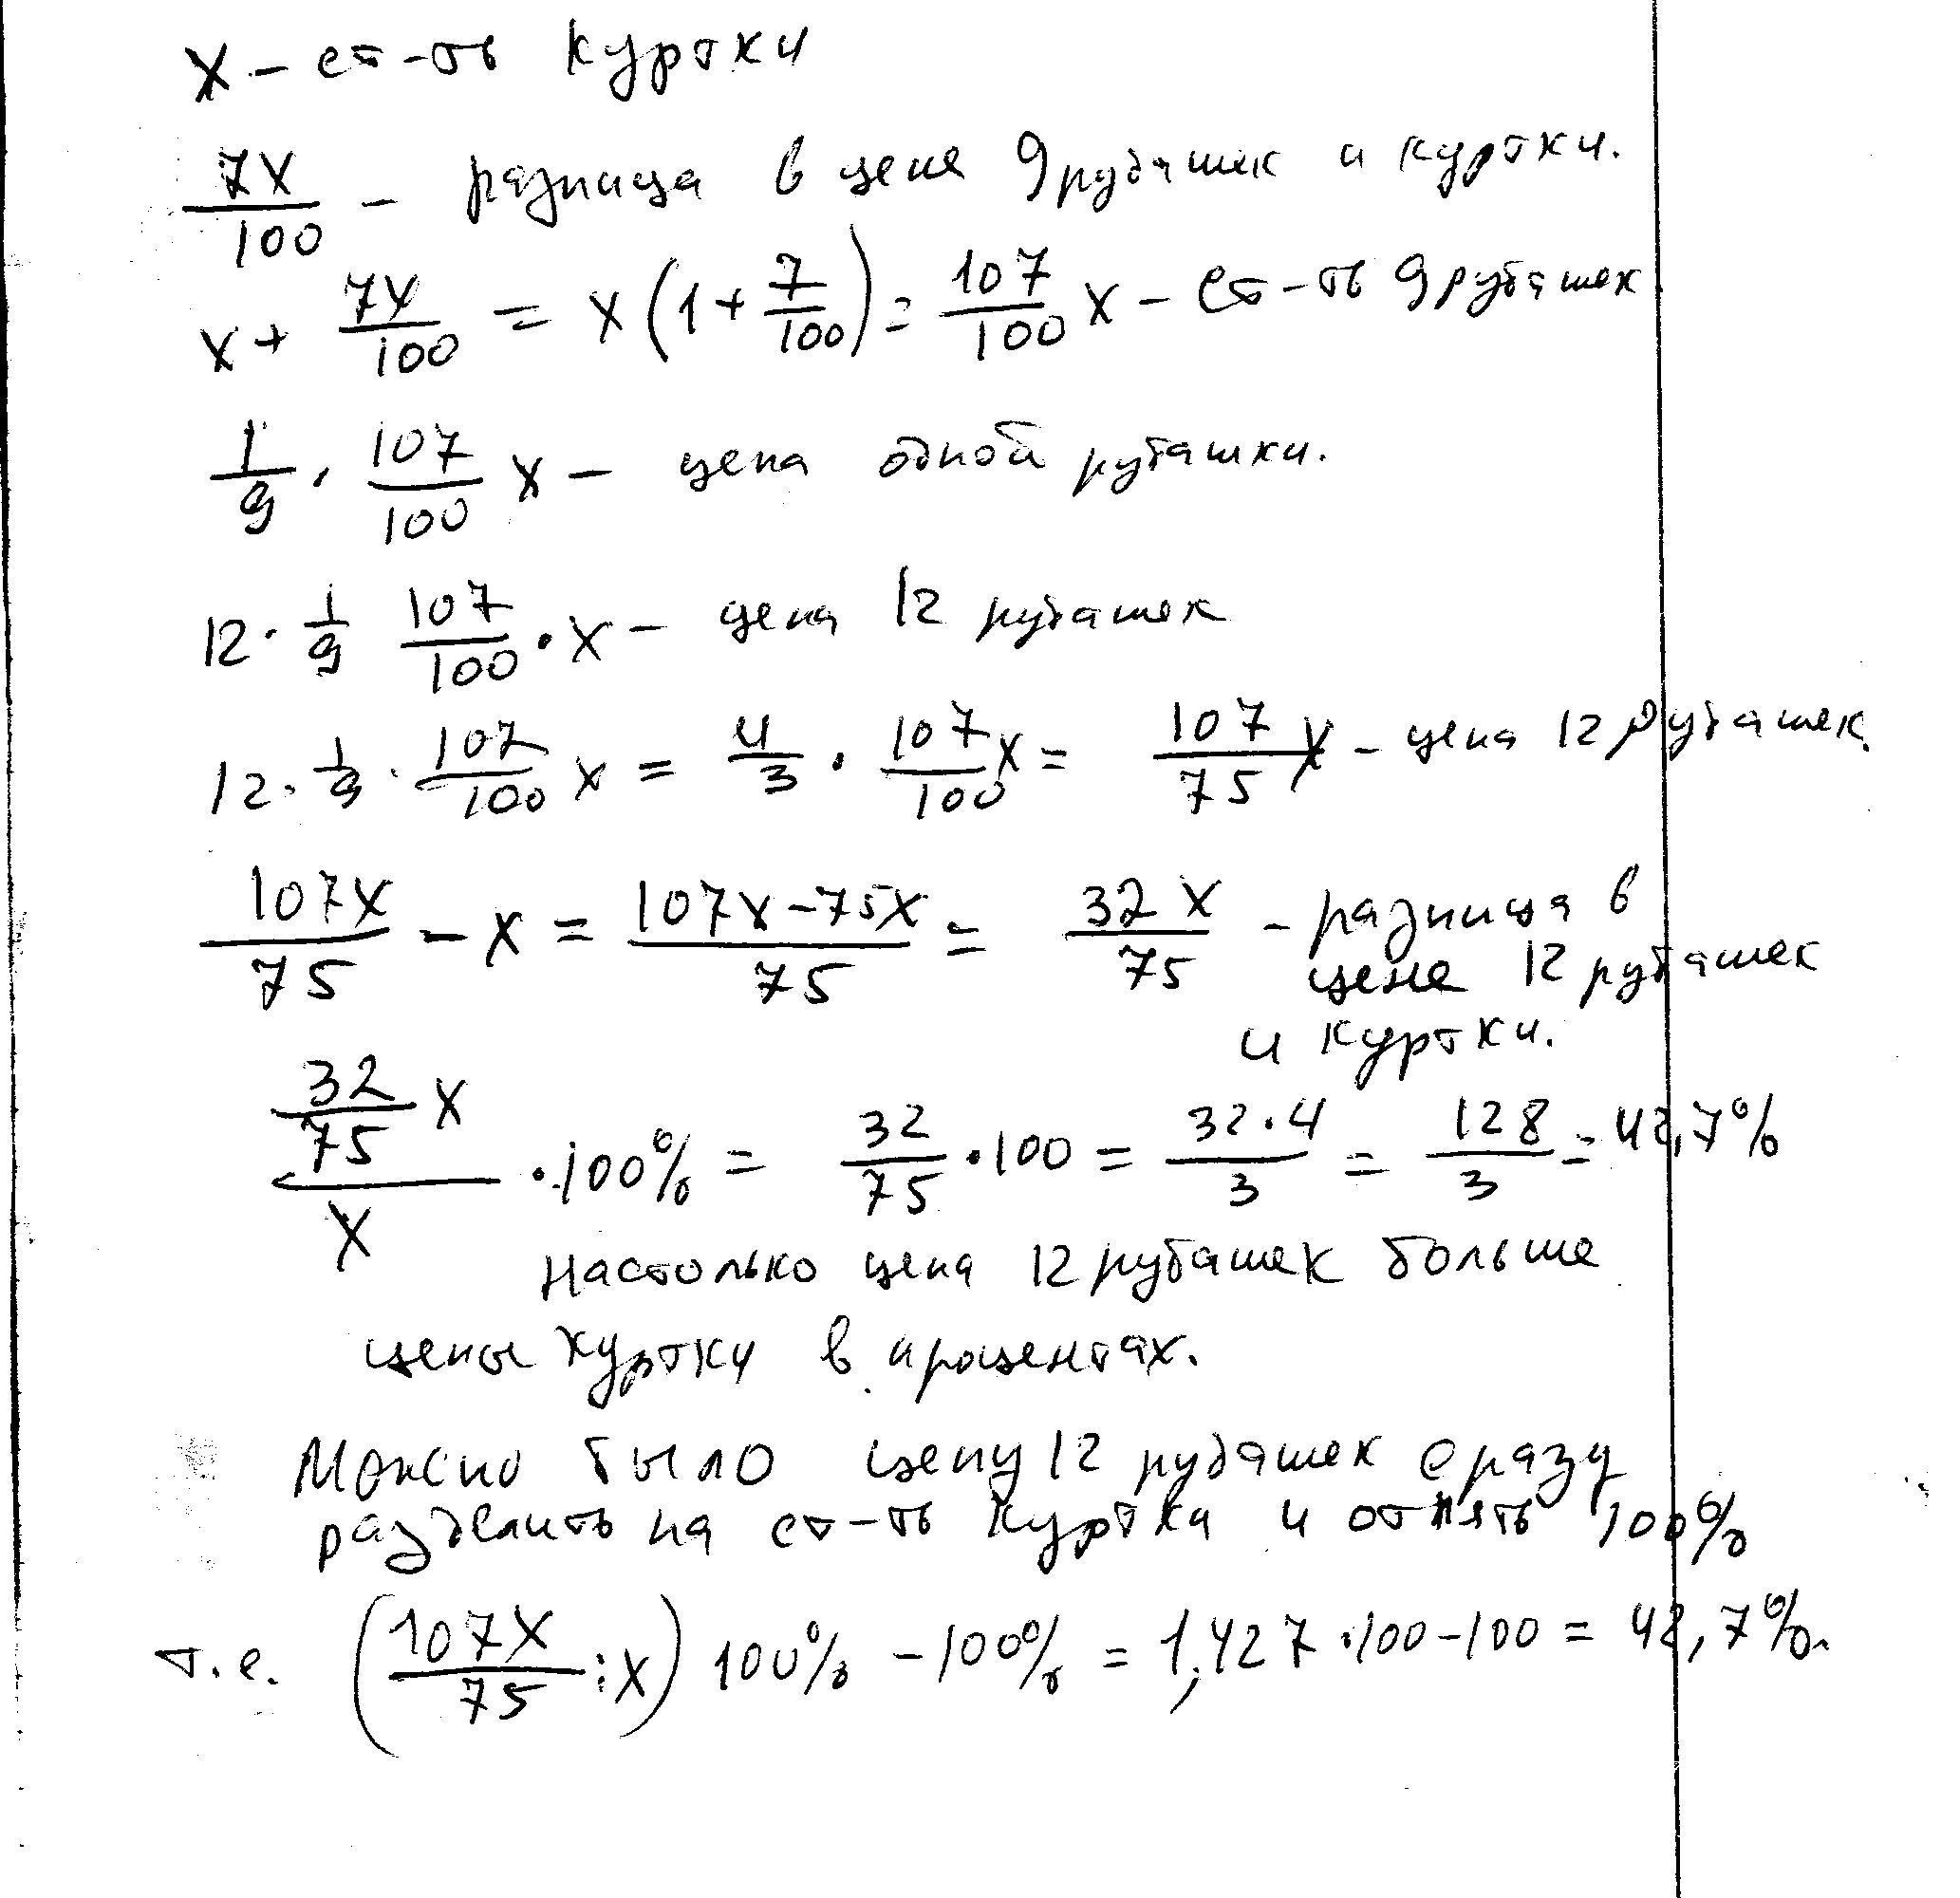 x – ст-ть куртки
7x/100 – разница в цене 9 рубашек и куртки.
x + 7x/100 = x(1 + 7/100) = 107/100 x – ст-ть 9 рубашек
1/9 · 107/100 x – цена одной рубашки.
12 · 1/9 107/100 · x – цена 12 рубашек
12 · 1/9 · 107/100 x = 4/3 · 107/100 x = 107/75 x – цена 12 рубашек.
107x/75 – x = (107x – 75x)/75 = 32x/75 – разница в
цене 12 рубашек
и куртки.
(32/75 x)/x · 100% = 32/75 · 100 = 32·4/3 = 128/3 = 42,7%
Настолько цена 12 рубашек больше
цены куртки в процентах.
Можно было цену 12 рубашек сразу
разделить на ст-ть куртки и отнять 100%
т.е. (107x/75 : x) 100% – 100% = 1,427 · 100 – 100 = 42,7%.